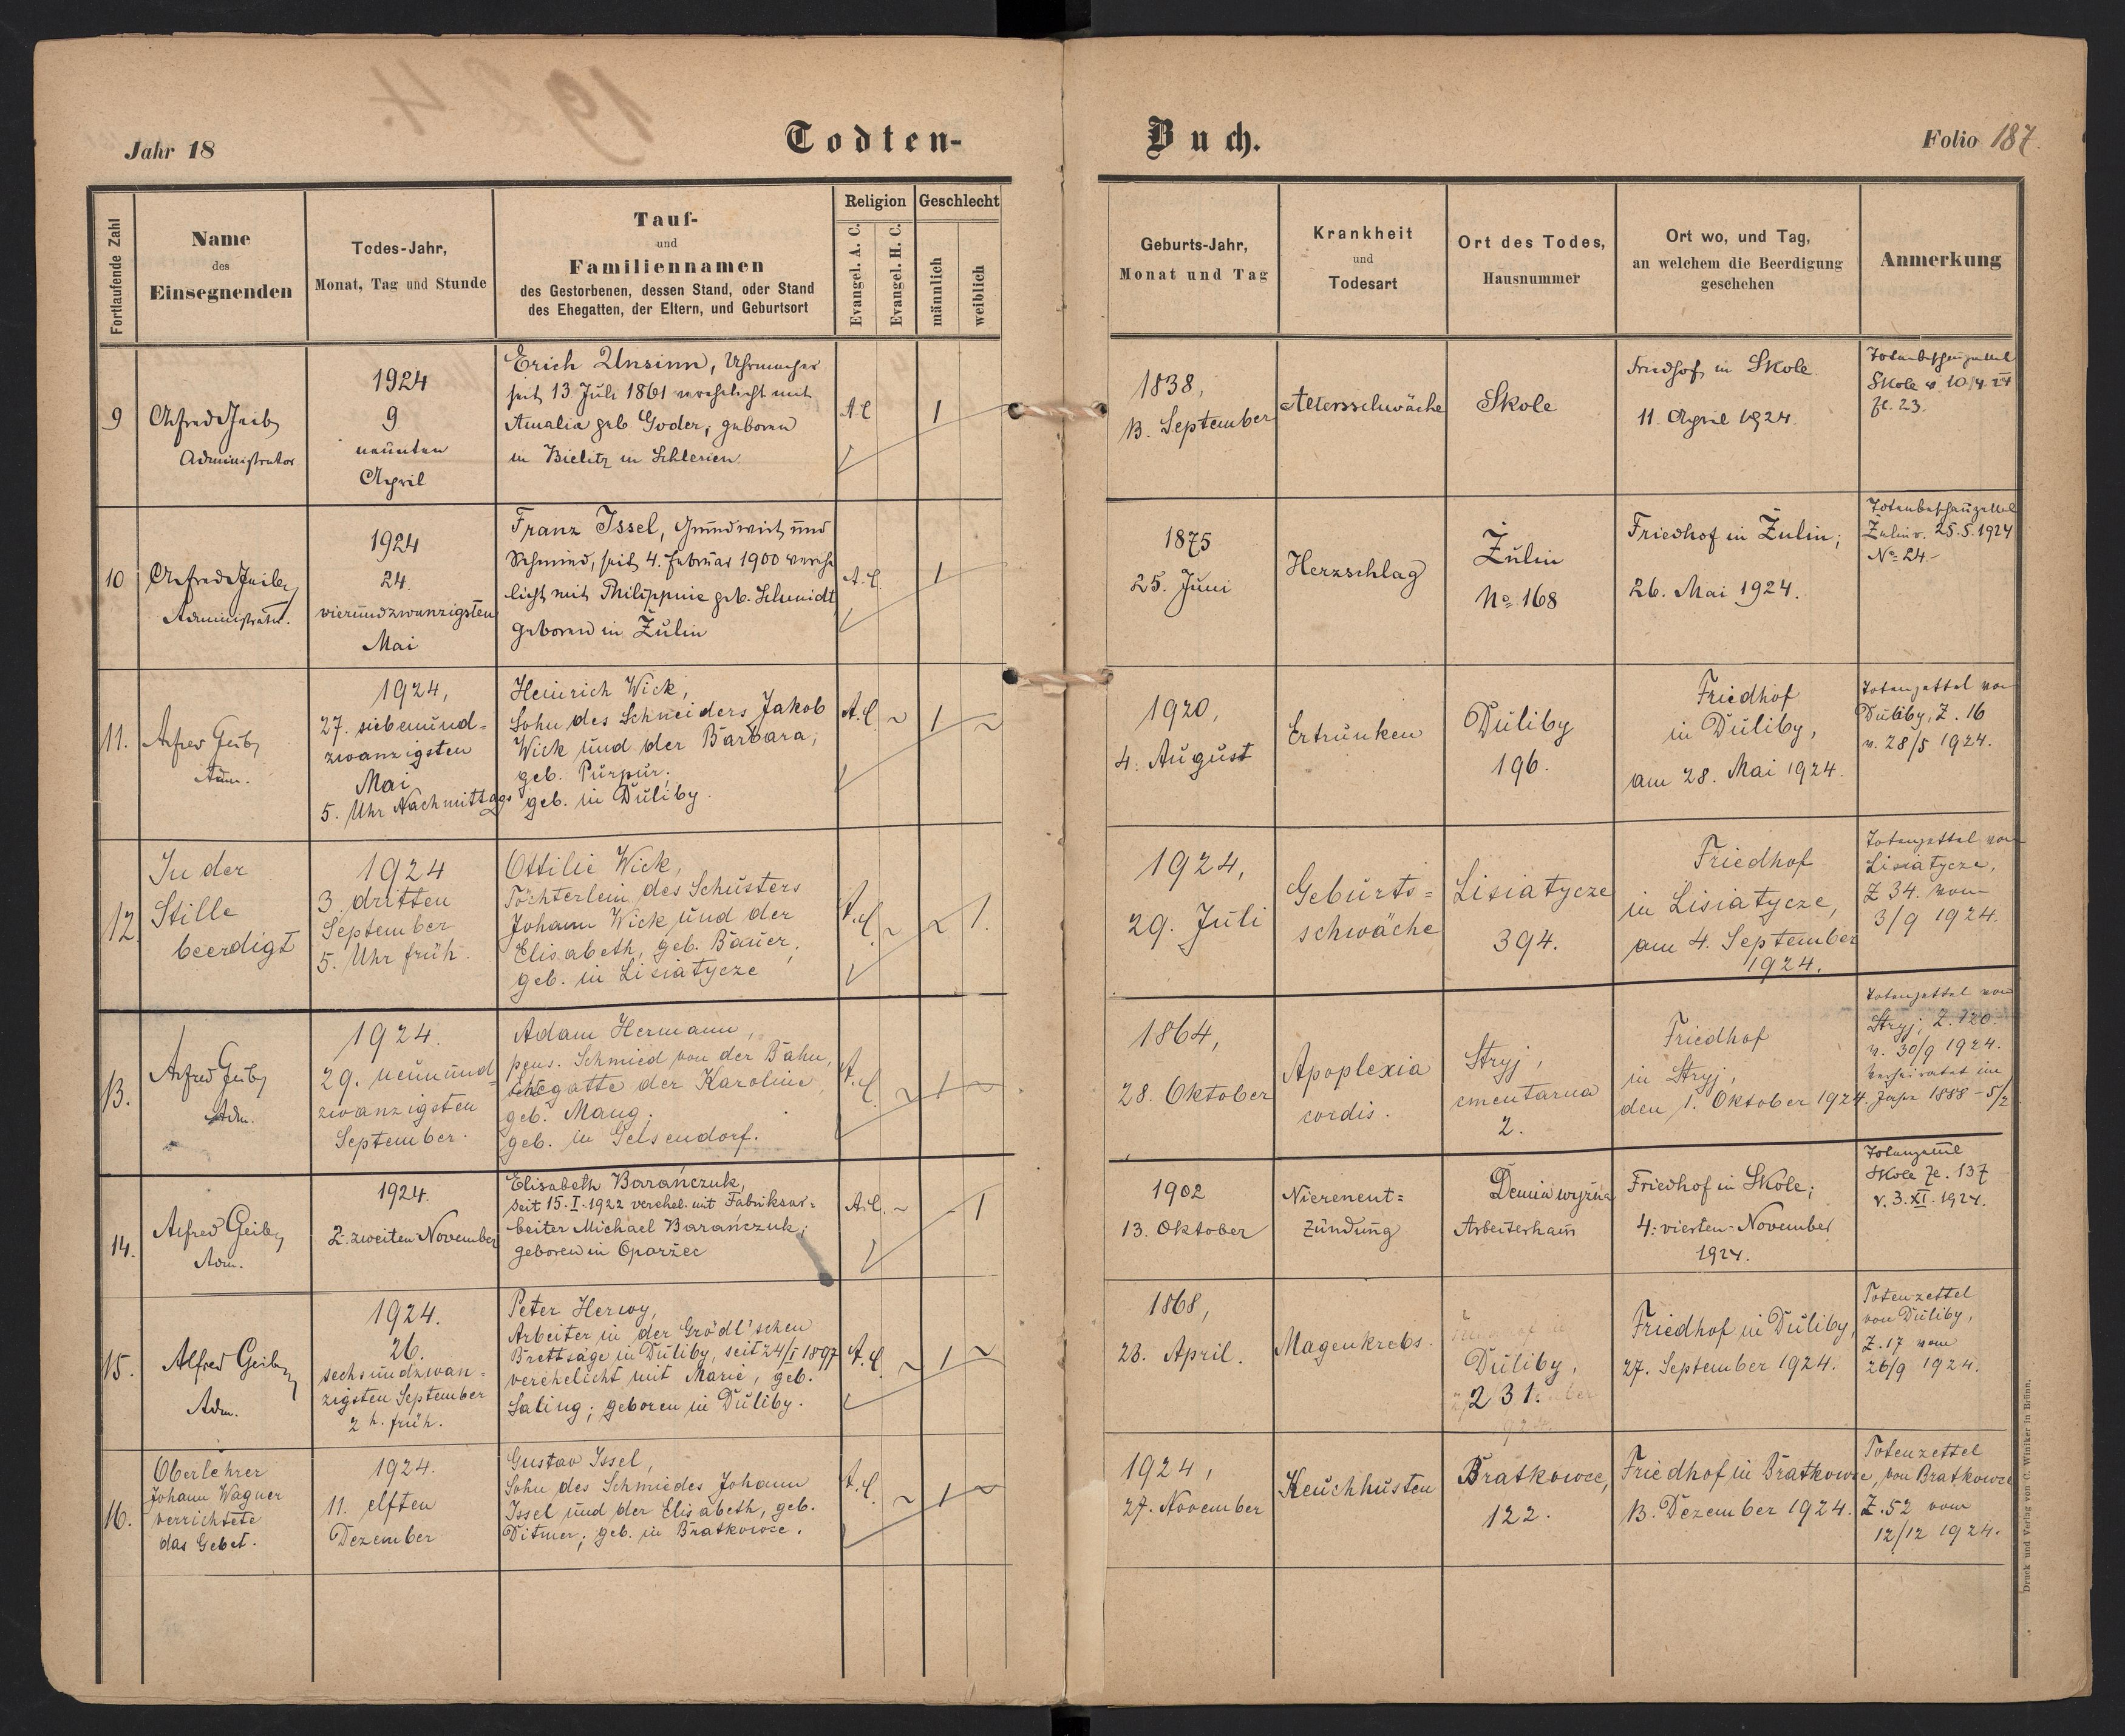 1924.
Jahr 18
Todten-
Buch.
Folio 187.
Fortlaufende Zahl
Name
des
Einsegnenden
Todes-Jahr,
Monat, Tag und Stunde
Tauf-
und
Familiennamen
des Gestorbenen, dessen Stand, oder Stand
des Ehegatten, der Eltern, und Geburtsort
Religion
Evangel. A. C.
Evangel. H. C.
Geschlecht
männlich
weiblich
Geburts-Jahr,
Monat und Tag
Krankheit
und
Todesart
Ort des Todes,
Hausnummer
Ort wo, und Tag,
an welchem die Beerdigung
geschehen
Anmerkung
9
Alfred Geib
Administrator
1924
9
neunten
April
Erich Unsinn, Uhrmacher
seit 13 Juli 1861 verehelicht mit
Amalia geb. Goder, geboren
in Bielitz in Schlesien.
A.C
1
1838,
13. September
Altersschwäche
Skole
Friedhof in Skole.
11. April 1924.
Totenbeschauzettel
Skole v. 10/4. 24
Zl. 23.
10
Alfred Geib
Administrator.
1924
24.
vierundzwanzigsten
Mai
Franz Issel, Grundwirt und
Schmied, seit 4. Februar 1900 verehe
licht mit Philippine geb. Schmidt
geboren in Żulin
A.C.
1
1875
25. Juni
Herzschlag
Żulin
No 168
Friedhof in Żulin;
26. Mai 1924.
Totenbeschauzettel
Żulin v. 25.5.1924
No 24.-
11.
Alfred Geib
Adm.
1924,
27. siebenund=
zwanzigsten
Mai
5. Uhr Nachmittags
Heinrich Wick,
Sohn des Schneiders Jakob
Wick und der Barbara,
geb. Purpur;
geb. in Duliby.
A.C. ~ 1 ~
1920,
4. August
Ertrunken
Duliby
196.
Friedhof
in Duliby,
am 28. Mai 1924.
Totenzettel von
Duliby, Z. 16
v. 28/5 1924.
12.
In der
Stille
beerdigt
1924
3. dritten
September
5. Uhr früh.
Ottilie Wick,
Töchterlein des Schusters
Johann Wick und der
Elisabeth, geb. Bauer,
geb. in Lisiatycze
A.C. ~ ~ 1.
1924,
29. Juli
Geburts=
schwäche
Lisiatycze
394.
Friedhof
in Lisiatycze,
am 4. September
1924.
Totenzettel von
Lisiatycze,
Z 34. vom
3/9 1924.
13.
Alfred Geib
Adm.
1924.
29. neunund=
zwanzigsten
September.
Adam Hermann,
pens. Schmied von der Bahn,
Ehegatte der Karoline
geb. Mang.
geb. in Gelsendorf.
A.C. ~ 1 ~
1864,
28. Oktober
Apoplexia
cordis.
Stryj,
cmentarna
2.
Friedhof
in Stryj,
den 1. Oktober 1924.
Totenzettel von
Stryj, Z. 120.
v. 30/9 1924.
Verheiratet im
Jahre 1888 - 5/2
14.
Alfred Geib
Adm.
1924.
2. zweiten November
Elisabeth Barańczuk,
seit 15.I.1922 verehel. mit Fabriksar=
beiter Michael Barańczuk;
geboren in Oparzec
A.C. ~ - 1
1902
13. Oktober
Nierenent=
zündung
Demnia wyżna
Arbeiterhaus
Friedhof in Skole;
4. vierten November
1924.
Totenzettel
Skole Zl. 137
v. 3.XI.1924.
15.
Alfred Geib
Adm.
1924.
26.
sechsundzwan=
zigsten September
2 h. früh.
Peter Herwy,
Arbeiter in der Grödl'schen
Brettsäge in Duliby, seit 24/I 1897
verehelicht mit Marie, geb.
Saling; geboren in Duliby.
A.C. ~ 1 ~
1868,
28. April.
Magenkrebs.
Duliby,
231.
Friedhof in Duliby,
27. September 1924.
Totenzettel
von Duliby,
Z. 17 vom
26/9 1924.
16.
Oberlehrer
Johann Wagner
verrichtete
das Gebet.
1924.
11. elften
Dezember
Gustav Issel,
Sohn des Schmiedes Johann
Issel und der Elisabeth, geb.
Ditmer; geb. in Bratkowce.
A.C. ~ 1 ~
1924,
27. November
Keuchhusten
Bratkowce,
122.
Friedhof in Bratkowce,
13. Dezember 1924.
Totenzettel
von Bratkowce
Z. 52 vom
12/12 1924.
Druck und Verlag von C. Winiker in Brünn.